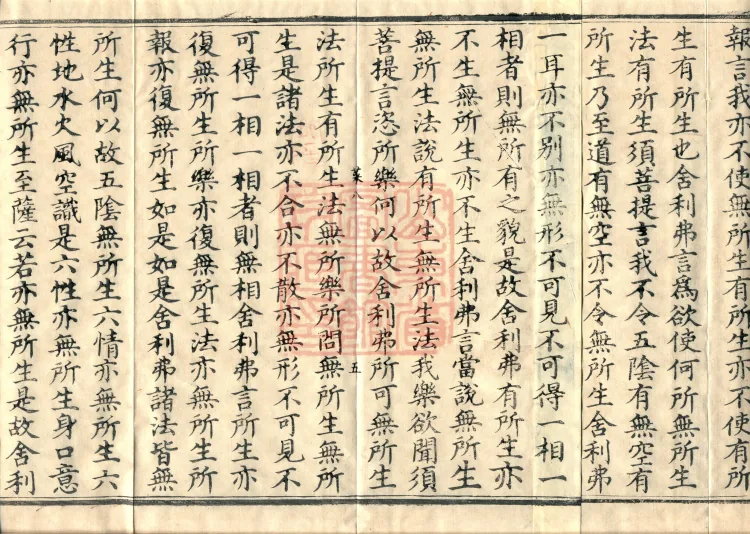 報言我亦不使無所生有所生亦不使有所
生有所生也舍利弗言爲欲使何所無所生
法有所生須菩提言我不令五陰有無空有
所生乃至道有無空亦不令無所生舍利弗
一耳亦不別亦無形不可見不可得一相一
相者則無所有之貌是故舍利弗有所生亦
不生無所生亦不生舍利弗言當說無所生
無所生法說有所生無所生法我樂欲聞須
菩提言恣所樂何以故舍利弗所可無所生
菜八 五
法所生有所生法無所樂所問無所生無所
生是諸法亦不合亦不散亦無形不可見不
可得一相一相者則無相舍利弗言所生亦
復無所生所樂亦復無所生法亦無所生所
報亦復無所生如是如是舍利弗諸法皆無
所生何以故五陰無所生六情亦無所生六
性地水火風空識是六性亦無所生身口意
行亦無所生至薩云若亦無所生是故舍利